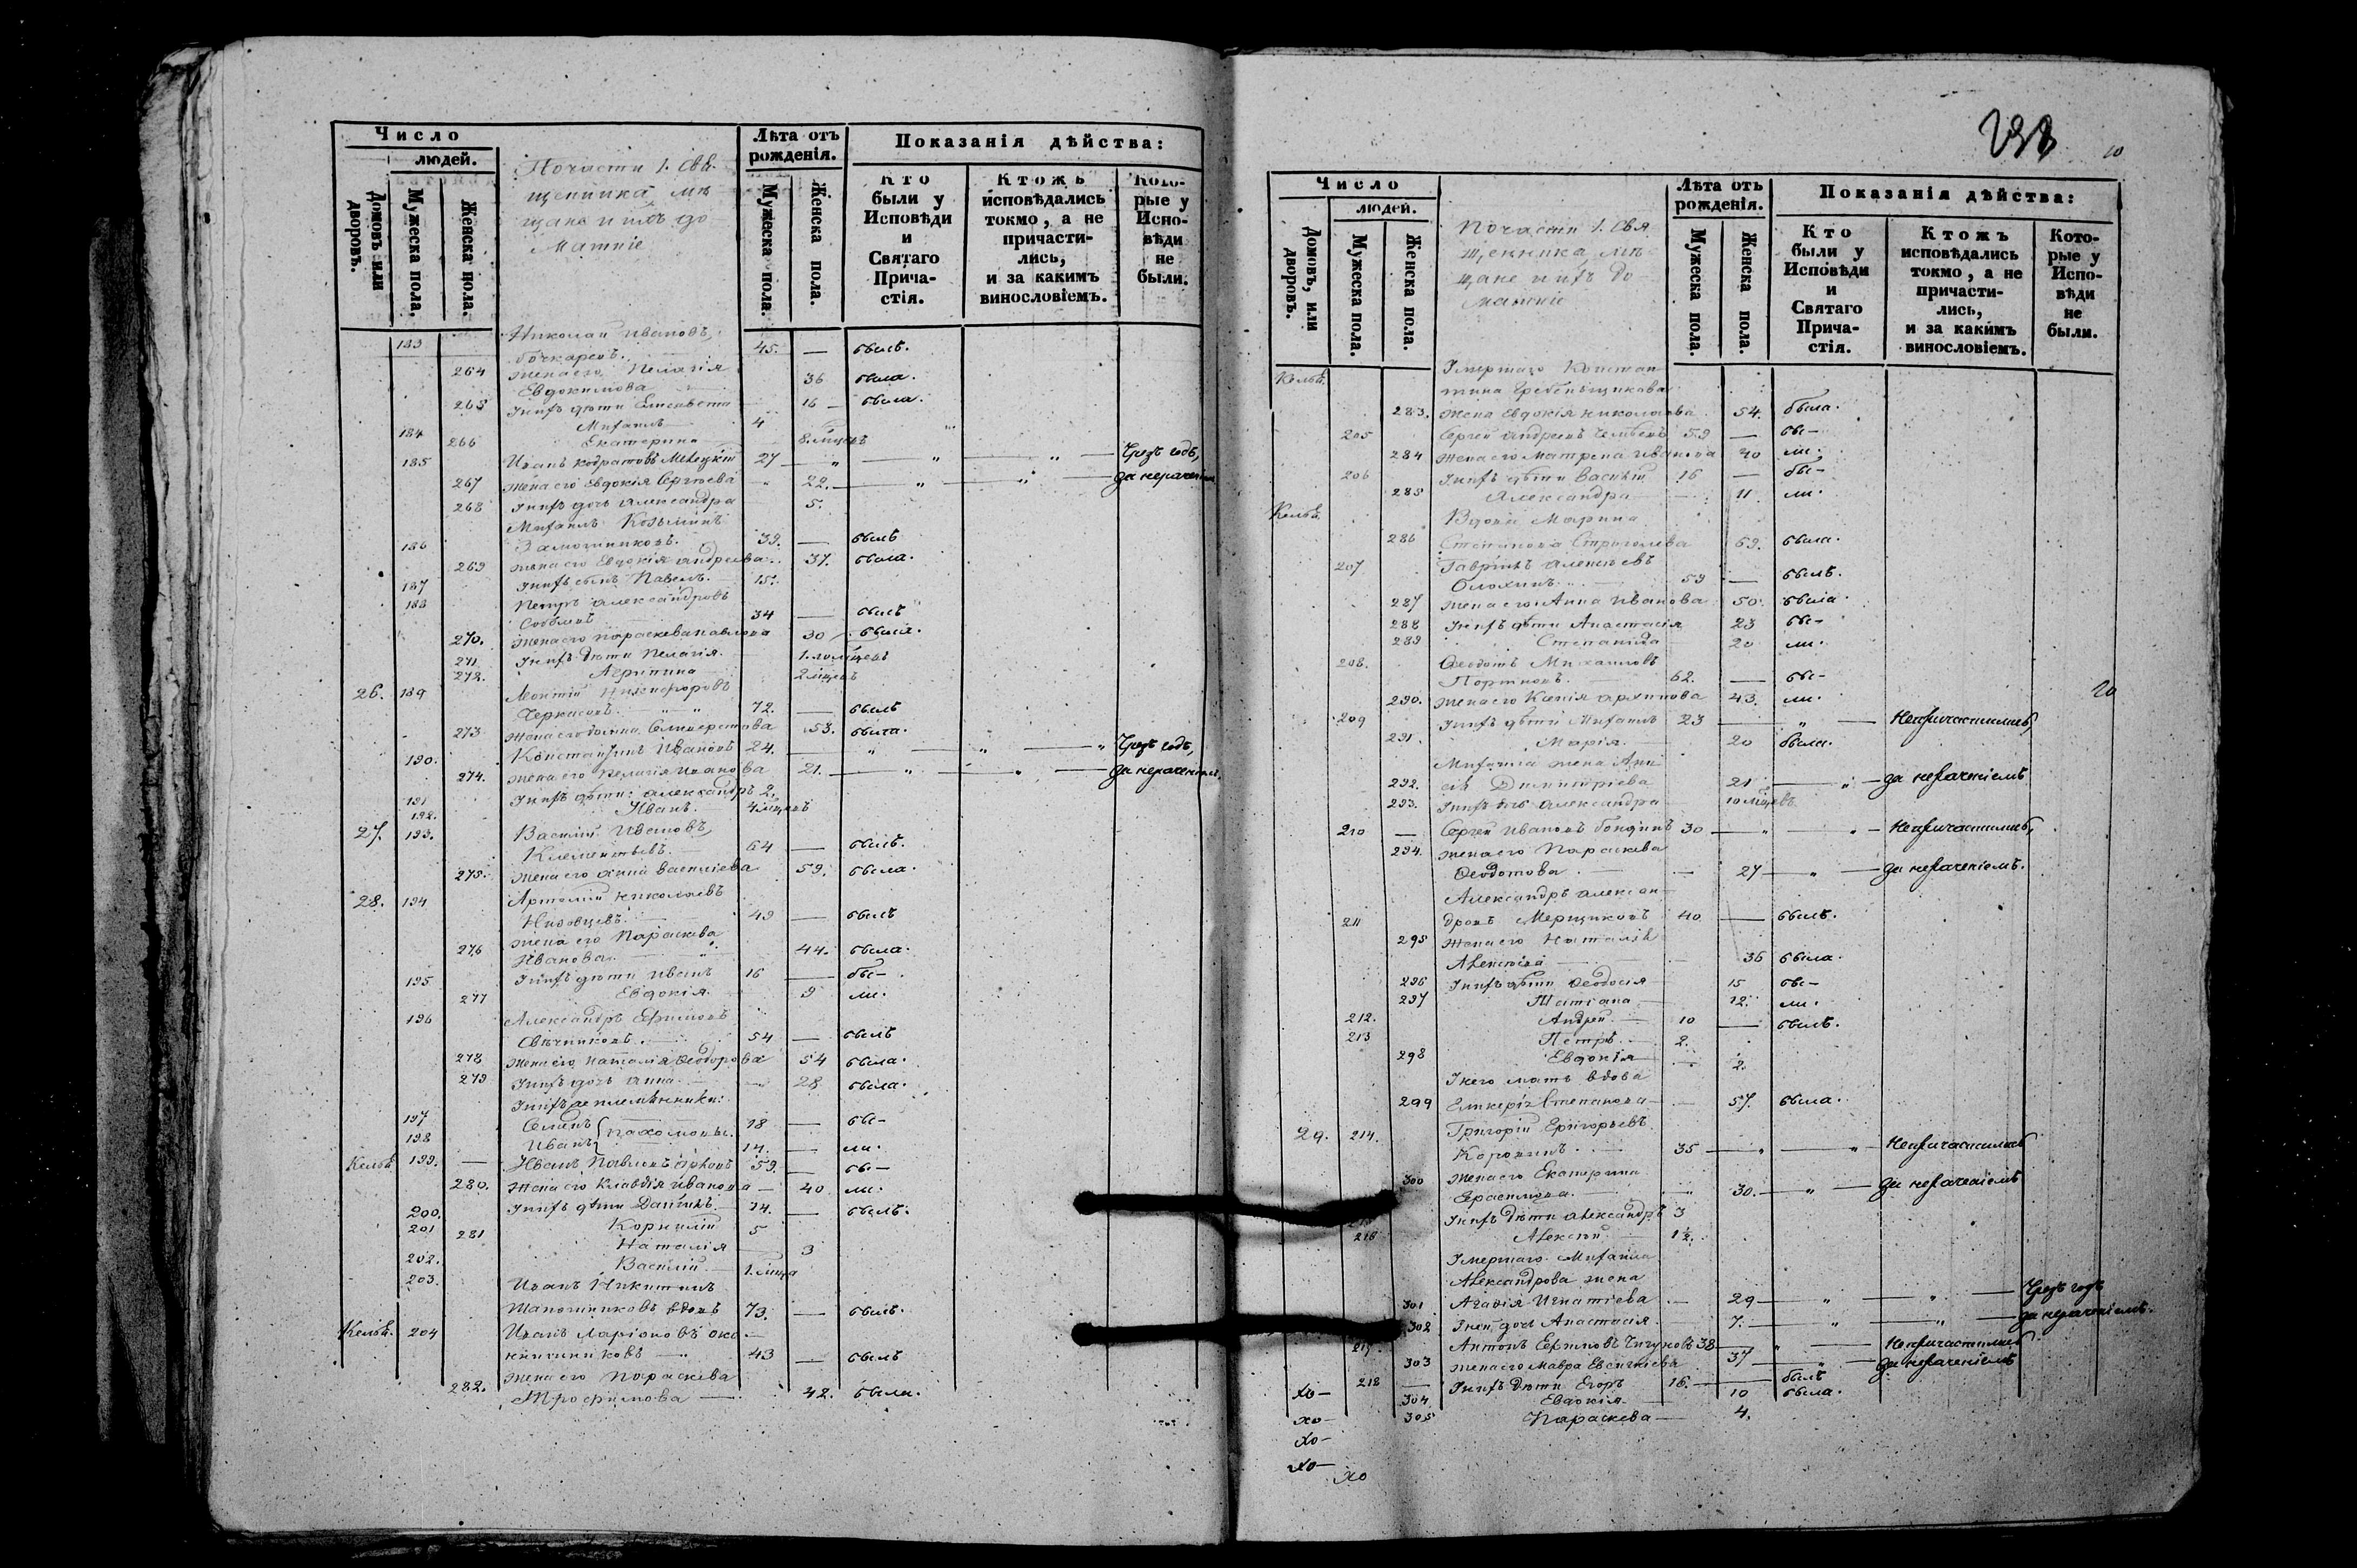 Число
людей.
Домовъ или дворовъ.
Мужеска пола.
Женска пола.
По части 1. Свя-
щенника мѣ-
щане и ихъ до-
машніе
Лѣта отъ рожденія.
Мужеска пола.
Женска пола.
Показанія дѣйства:
Кто были у Исповѣди и Святаго Прича-стія.
Ктожъ исповѣдались токмо, а не причасти-лись, и за какимъ винословіемъ.
Кото-рые у Испо-вѣди не были.
183 Николай Ивановъ
Бочкаревъ. 45. — былъ.
264 жена его Пелагія
Евдокимова 36 была.
265 У нихъ дѣти Елисавета 16 — была.
184 Михаилъ 4
266 Екатерина 8. мцевъ
185 Иванъ 27 Чрезъ годъ,
267 жена его Евдокія Сергѣева 22. за нераченіемъ
268 У нихъ дочь Александра 5.
Михаилъ Козьминъ
186 39. — былъ
269 жена его Евдокія Андреева 37. была.
187 У нихъ сынъ Павелъ. 15.
188 Петръ Александровъ
34 — былъ
270. жена его Параскева Павлова 30 была.
271 У нихъ дѣти Пелагія.
272. Агрипина 2 мцевъ
26. 189 Леонтій Никифоровъ
Черкасовъ. 72. — былъ
273 жена его 53. была.
190. Константинъ Ивановъ 24. Чрезъ годъ,
274. жена его Пелагія Иванова 21. за нераченіемъ.
191 У нихъ дѣти: Александръ 2.
192. Иванъ. 4 мцевъ
27. 193. Василій Ивановъ
Клементьевъ. 64 — былъ.
275. жена его Анна Васильева 59. была.
28. 194 Артемій Николаевъ
49 — былъ
жена его Параскева
276 Иванова. 44. была.
195 У нихъ дѣти Иванъ 16 — бы-
277 Евдокія. 9 ли.
196 Александръ Ефимовъ
Свѣчниковъ. 54 — былъ
278 жена его Наталія Ѳеодорова 54 была.
279 У нихъ дочь Анна. 28 была.
У нихъ же племянники:
197 Семенъ } Пахомовы. 18 — бы-
198 Иванъ 14. — ли.
Кельѣ. 199. — Иванъ Павловъ 59. — бы-
280. жена его Клавдія Иванова — 40 ли.
200. У нихъ дѣти Даніилъ. 14. — былъ.
201 Корнилій 5
281 Наталія 3
202. Василій 1. мца
203. Иванъ Никитинъ
Шапошниковъ вдовъ 73. — былъ.
Кельѣ. 204 Иванъ Ларіоновъ Око-
нишниковъ 43 — былъ
жена его Параскева
282. Трофимова 42. была.
10
Число
людей.
Домовъ, или дворовъ.
Мужеска пола.
Женска пола.
По части 1. Свя-
щенника, мѣ-
щане и ихъ до-
машніе
Лѣта отъ рожденія.
Мужеска пола.
Женска пола.
Показанія дѣйства:
Кто были у Исповѣди и Святаго Прича-стія.
Ктожъ исповѣдались токмо, а не причасти-лись, и за какимъ винословіемъ.
Кото-рые у Испо-вѣди не были.
Кельѣ. Умершаго Констан-
тина Гребенщикова
283. жена Евдокія Николаева 54. была.
205 Сергей Андреевъ 59 — бы-
284 жена его Матрена Иванова 40 ли.
206 У нихъ дѣти Василій 16 — бы-
285 Александра 11. ли.
Кельѣ. Вдова Марина
286 Степанова Стригалева 69. была.
207 Гавріилъ Алексѣевъ
59 — былъ.
287 жена его Анна Иванова 50. была.
288 У нихъ дѣти Анастасія 23 бы-
289 Степанида 20 ли.
208. Ѳеодотъ Михаиловъ
Портновъ. 62. — бы-
290. жена его Ксенія Архипова 43. ли.
20
209 У нихъ дѣти Михаилъ 23 Непричастились,
291. Марія. 20 была.
Михаила жена Ани-
292. сія Димитріева 21 за нераченіемъ
293. У нихъ дочь Александра 10 мцевъ.
210 — Сергей Ивановъ 30 Непричастились,
294. жена его Параскева
Ѳеодотова. 27 за нераченіемъ.
Александръ Алексан-
211 дровъ Мерщиковъ 40 — былъ.
295 жена его Наталія
Алексѣева 36 была.
296 У нихъ дѣти Ѳеодосія 15 бы-
297 Татіана 12. ли.
212. Андрей 10 — былъ.
213 Петръ. 2.
298 Евдокія 2.
У него мать вдова
299 Гликерія Степанова 57. была.
29. 214. Григорій Григорьевъ
35 Непричастились
300 жена его Екатерина
Герасимова. 30. за нераченіемъ
У нихъ дѣти Александръ 3
216 Алексѣй 1½.
Умершаго Михаила
Александрова жена
301 Агафія Игнатіева 29 Чрезъ годъ
302 У ней дочь Анастасія. 7. за нераченіемъ.
Антонъ Ефимовъ 38 Непричастились
303 жена его Мавра 37 за нераченіемъ
218 У нихъ дѣти Егоръ 16. былъ
304 Евдокія 10 была.
305 Параскева 4.
хо-
хо-
хо-
хо-
хо